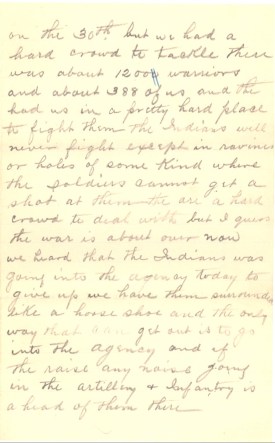 on the 30th but we had a
hard crowd to tackle there
was about 1200 warriors
and about 388 of us and the
had us in a pretty hard place
to fight them the Indians will
never fight except in ravines
or holes of some kind where
the soldiers cannot get a
shot at them the are a hard
crowd to deal with but I guess
the war is about over now
we heard that the Indians was
going into the agency today to
give up we have them surrounded
like a horse shoe and the only
way that can get out is to go
into the agency and if
the raise any noise going
in the artillery + Infantry is
ahead of them there